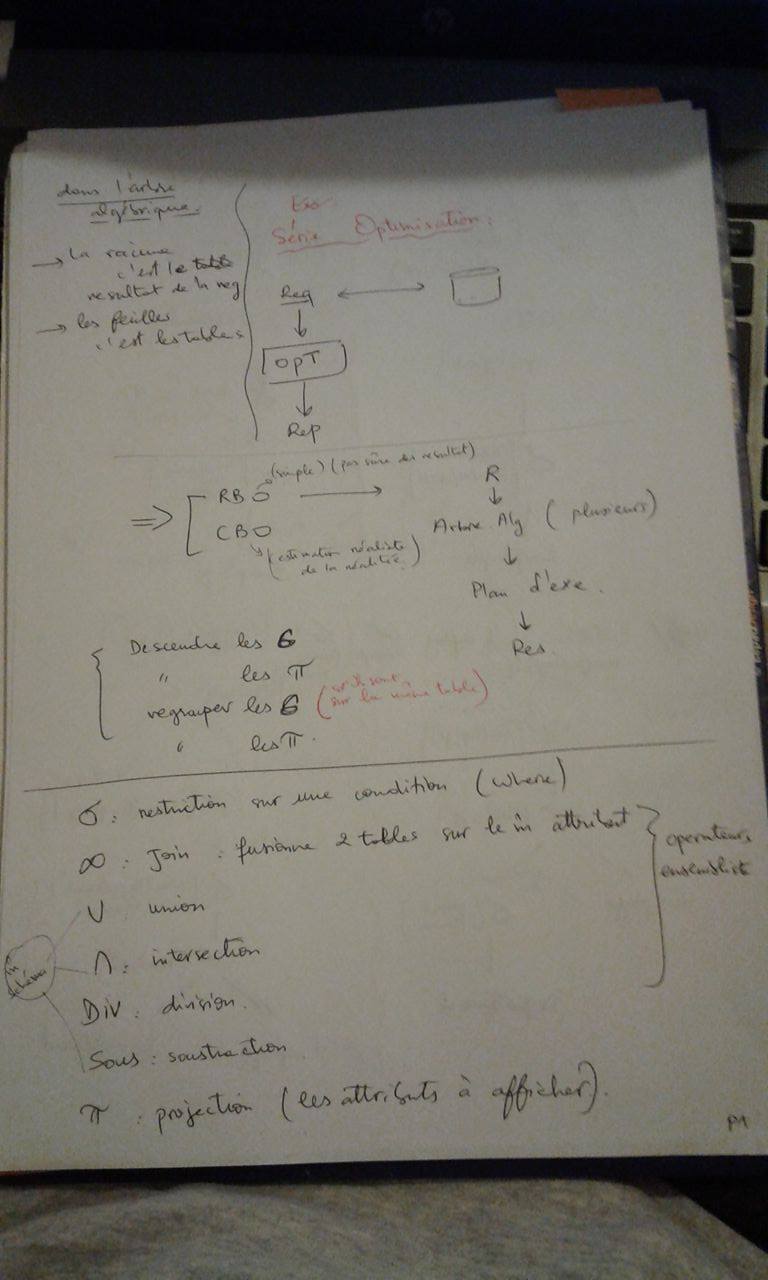 dans l'arbre
algébrique.
→ la racine
c'est le
resultat de la req
→ les feuilles
c'est les tables
Exo
Série Optimisation:
Req
OPT
Rep
(simple) (pas sûre du resultat)
⇒ RBO → R
CBO
(estimation réaliste
de la réalitée)
Arbre Alg (plusieurs)
Plan d'exe.
Res.
Descendre les σ
" les π
regrouper les σ (si ils sont
sur la même table)
" les π.
σ: restriction sur une condition (where)
∞: Join: fusionne 2 tables sur le m̂ attribut
operateurs
ensemblist
∪ union
∩: intersection
m̂
schéma
Div: division.
Sous: soustraction
π: projection (les attributs à afficher).
P1